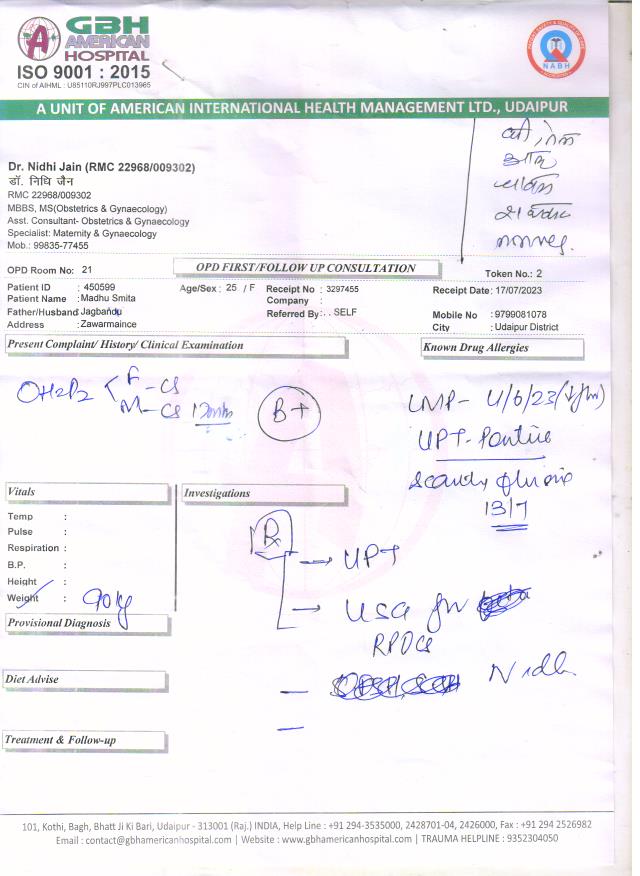 GBH
AMERICAN
HOSPITAL
ISO 9001 : 2015
CIN of AIHML : U85110RJ997PLC013965
NABH
A UNIT OF AMERICAN INTERNATIONAL HEALTH MANAGEMENT LTD., UDAIPUR
Dr. Nidhi Jain (RMC 22968/009302)
डॉ. निधि जैन
RMC 22968/009302
MBBS, MS(Obstetrics & Gynaecology)
Asst. Consultant- Obstetrics & Gynaecology
Specialist: Maternity & Gynaecology
Mob.: 99835-77455
OPD Room No: 21
OPD FIRST/FOLLOW UP CONSULTATION
Token No.: 2
Patient ID : 450599
Age/Sex : 25 / F
Receipt No : 3297455
Receipt Date: 17/07/2023
Patient Name : Madhu Smita
Company :
Father/Husband : Jagbandu
Referred By: . . SELF
Mobile No : 9799081078
Address : Zawarmaince
City : Udaipur District
Present Complaint/ History/ Clinical Examination
Known Drug Allergies
F - CS
M - CS
B+
LMP - 4/6/23
UPT -
13/7
Vitals
Investigations
Temp :
Pulse :
Respiration :
B.P. :
Height :
Weight : 90 kg
Rx
UPT
USG for
RPOCs
Provisional Diagnosis
Nidhi
Diet Advise
Treatment & Follow-up
101, Kothi, Bagh, Bhatt Ji Ki Bari, Udaipur - 313001 (Raj.) INDIA, Help Line : +91 294-3535000, 2428701-04, 2426000, Fax : +91 294 2526982
Email : contact@gbhamericanhospital.com | Website : www.gbhamericanhospital.com | TRAUMA HELPLINE : 9352304050